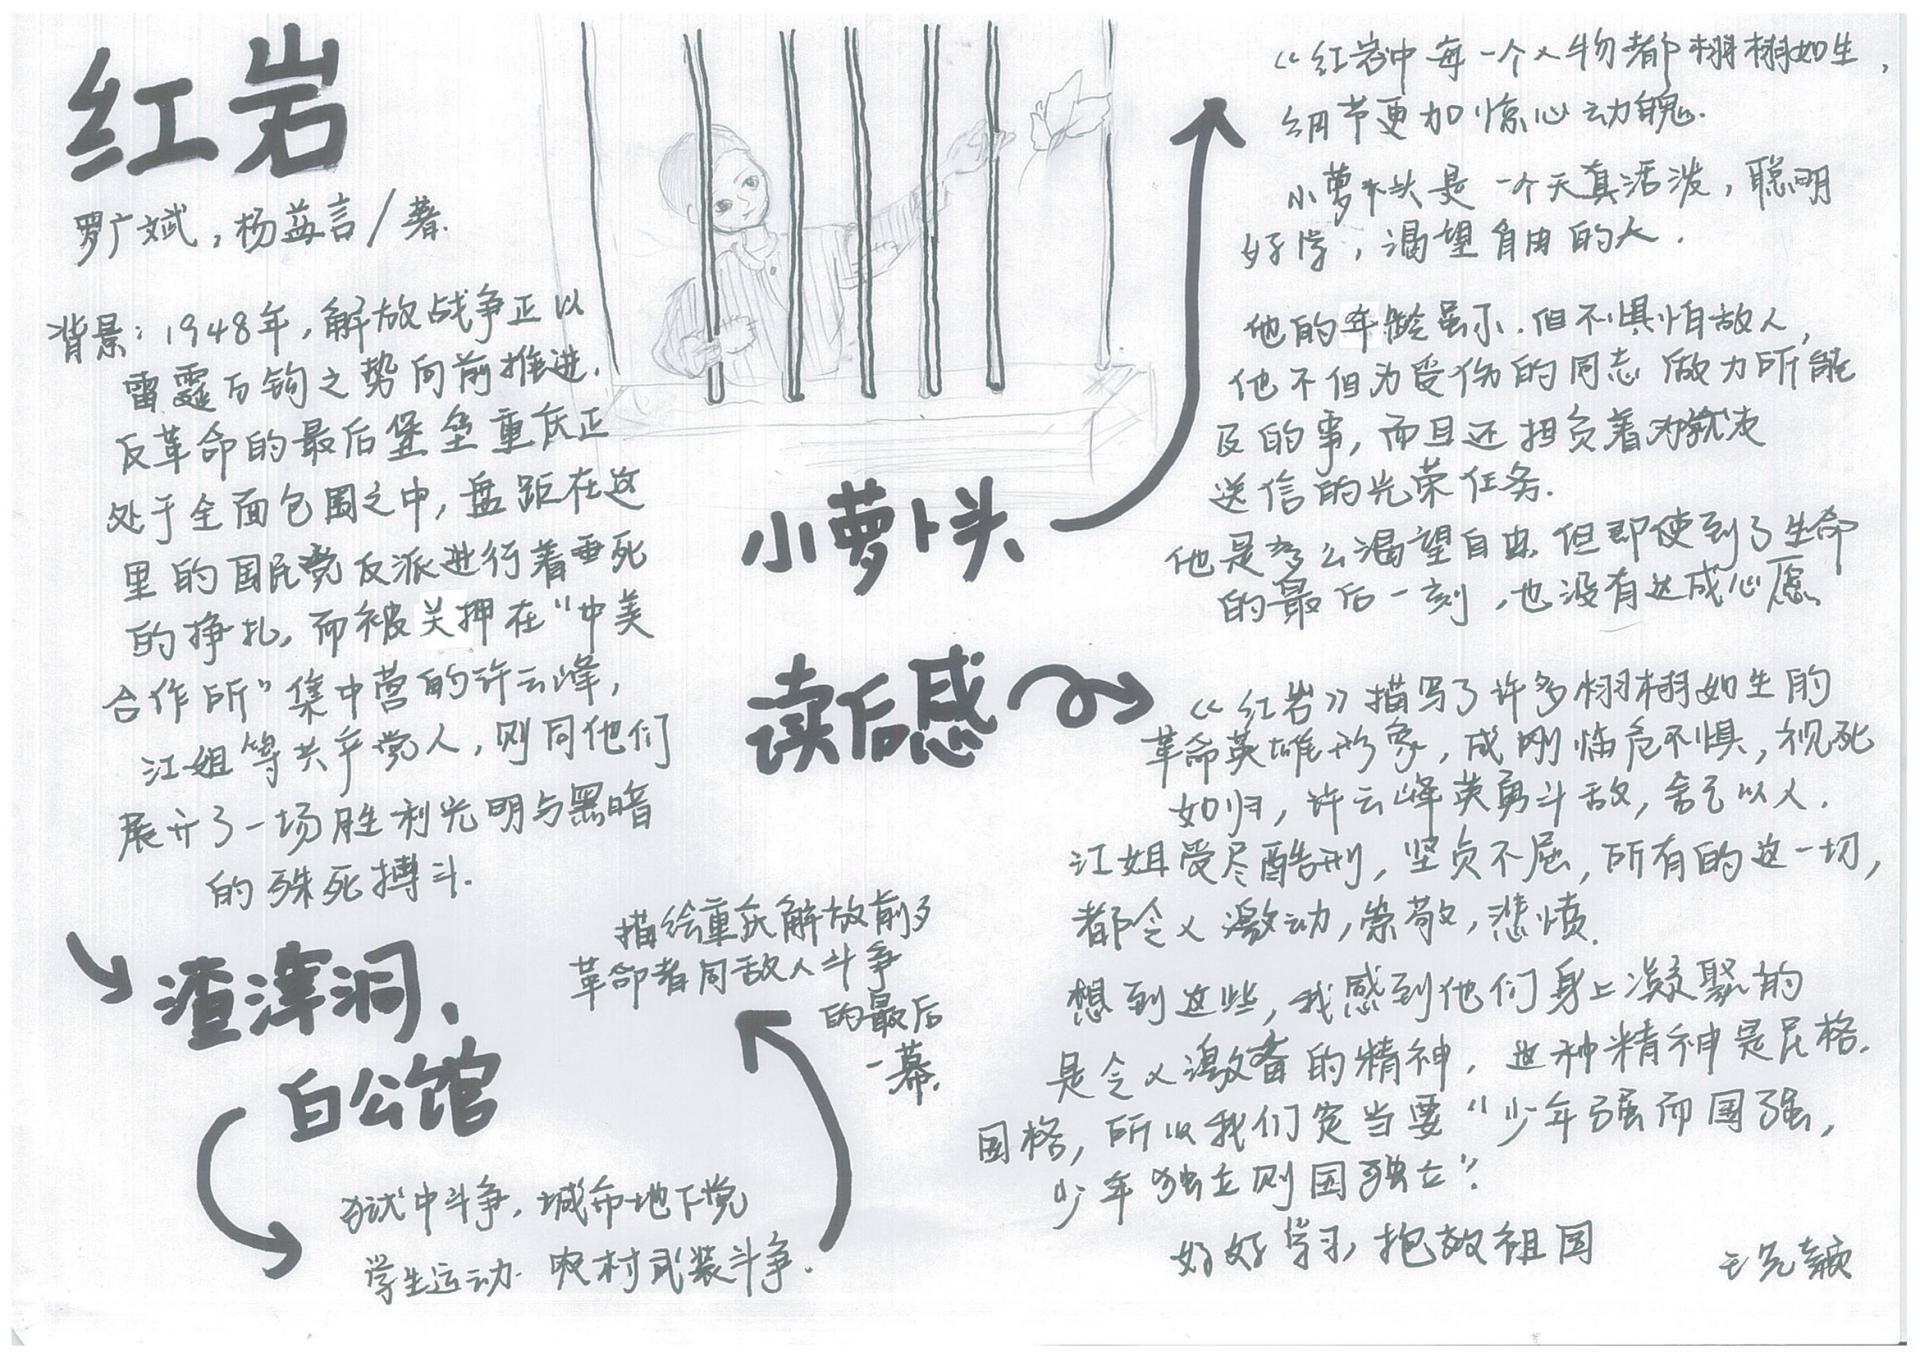 红岩
罗广斌，杨益言/著.
背景：1948年，解放战争正以
雷霆万钧之势向前推进.
反革命的最后堡垒重庆正
处于全面包围之中，盘距在这
里的国民党反派进行着垂死
的挣扎，而被关押在“中美
合作所”集中营的许云峰，
江姐等共产党人，则同他们
展开了一场胜利光明与黑暗
的殊死搏斗.
渣滓洞、
白公馆
狱中斗争，城市地下党
学生运动. 农村武装斗争.
描绘重庆解放前夕
革命者同敌人斗争
的最后
一幕.
小萝卜头
《红岩中每一个人物都栩栩如生，
细节更加惊心动魄.
小萝卜头是一个天真活泼，聪明
好学，渴望自由的人.
他的年龄虽小.但不惧怕敌人，
他不但为受伤的同志做力所能
及的事，而且还担负着为狱友
送信的光荣任务.
他是多么渴望自由.但即使到了生命
的最后一刻，也没有达成心愿.
读后感
《红岩》描写了许多栩栩如生的
革命英雄形象，成刚临危不惧，视死
如归，许云峰英勇斗敌，舍己以人.
江姐受尽酷刑，坚贞不屈，所有的这一切，
都令人激动，崇敬，悲愤.
想到这些，我感到他们身上凝聚的
是令人激奋的精神，这种精神是民格.
国格，所以我们定当要“少年强而国强，
少年独立则国独立”.
好好学习，抱效祖国